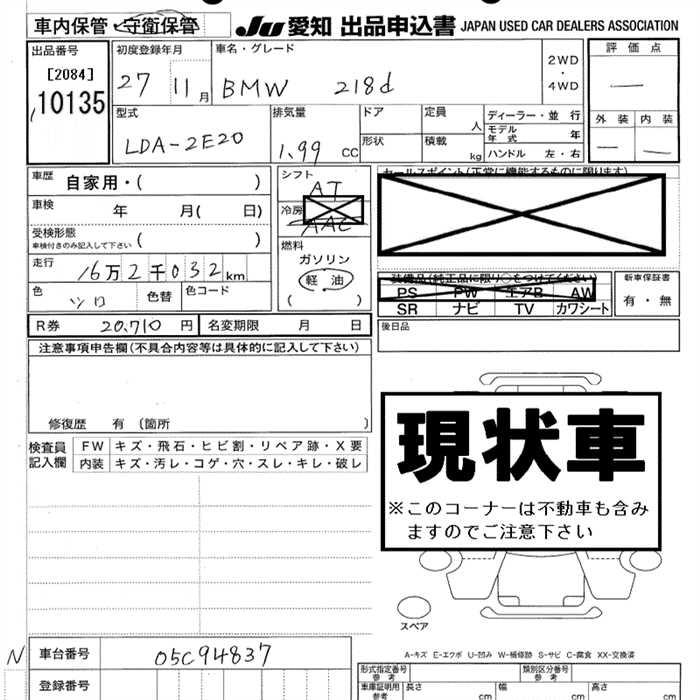 車内保管・守衛保管 JU 愛知 出品申込書 JAPAN USED CAR DEALERS ASSOCIATION
出品番号 初度登録年月 車名・グレード 2WD・4WD 評価点
[2084] 27 11月 BMW 218d —
10135
型式 排気量 ドア 定員 人 ディーラー・並行 外装 内装
LDA-2E20 1.99 CC 形状 積載 kg モデル年式 年 — —
ハンドル 左・右
車歴 自家用・( ) シフト AT セールスポイント(正常に機能するものに限ります)
車検 年 月( 日) 冷房 AAC
受検形態 車検付きのみ記入して下さい ( ) 燃料
ガソリン
走行 16万2千032km 軽油
( )
色 シロ 色替 色コード
装備品(純正品に限り○をつけてください) 新車保証書
PS PW エアB AW 有・無
SR ナビ TV カワシート
R券 20,710円 名変期限 月 日 後日品
注意事項申告欄(不具合内容等は具体的に記入して下さい)
修復歴 有 (箇所 )
現状車
※このコーナーは不動車も含み
ますのでご注意下さい
検査員記入欄 FW キズ・飛石・ヒビ割・リペア跡・X要
内装 キズ・汚レ・コゲ・穴・スレ・キレ・破レ
スペア
A-キズ E-エクボ U-凹み W-補修跡 S-サビ C-腐食 XX-交換済
N 車台番号 05C94837
登録番号
形式指定番号 参考 類別区分番号 参考
車庫証明用 参考 長さ cm 幅 cm 高さ cm